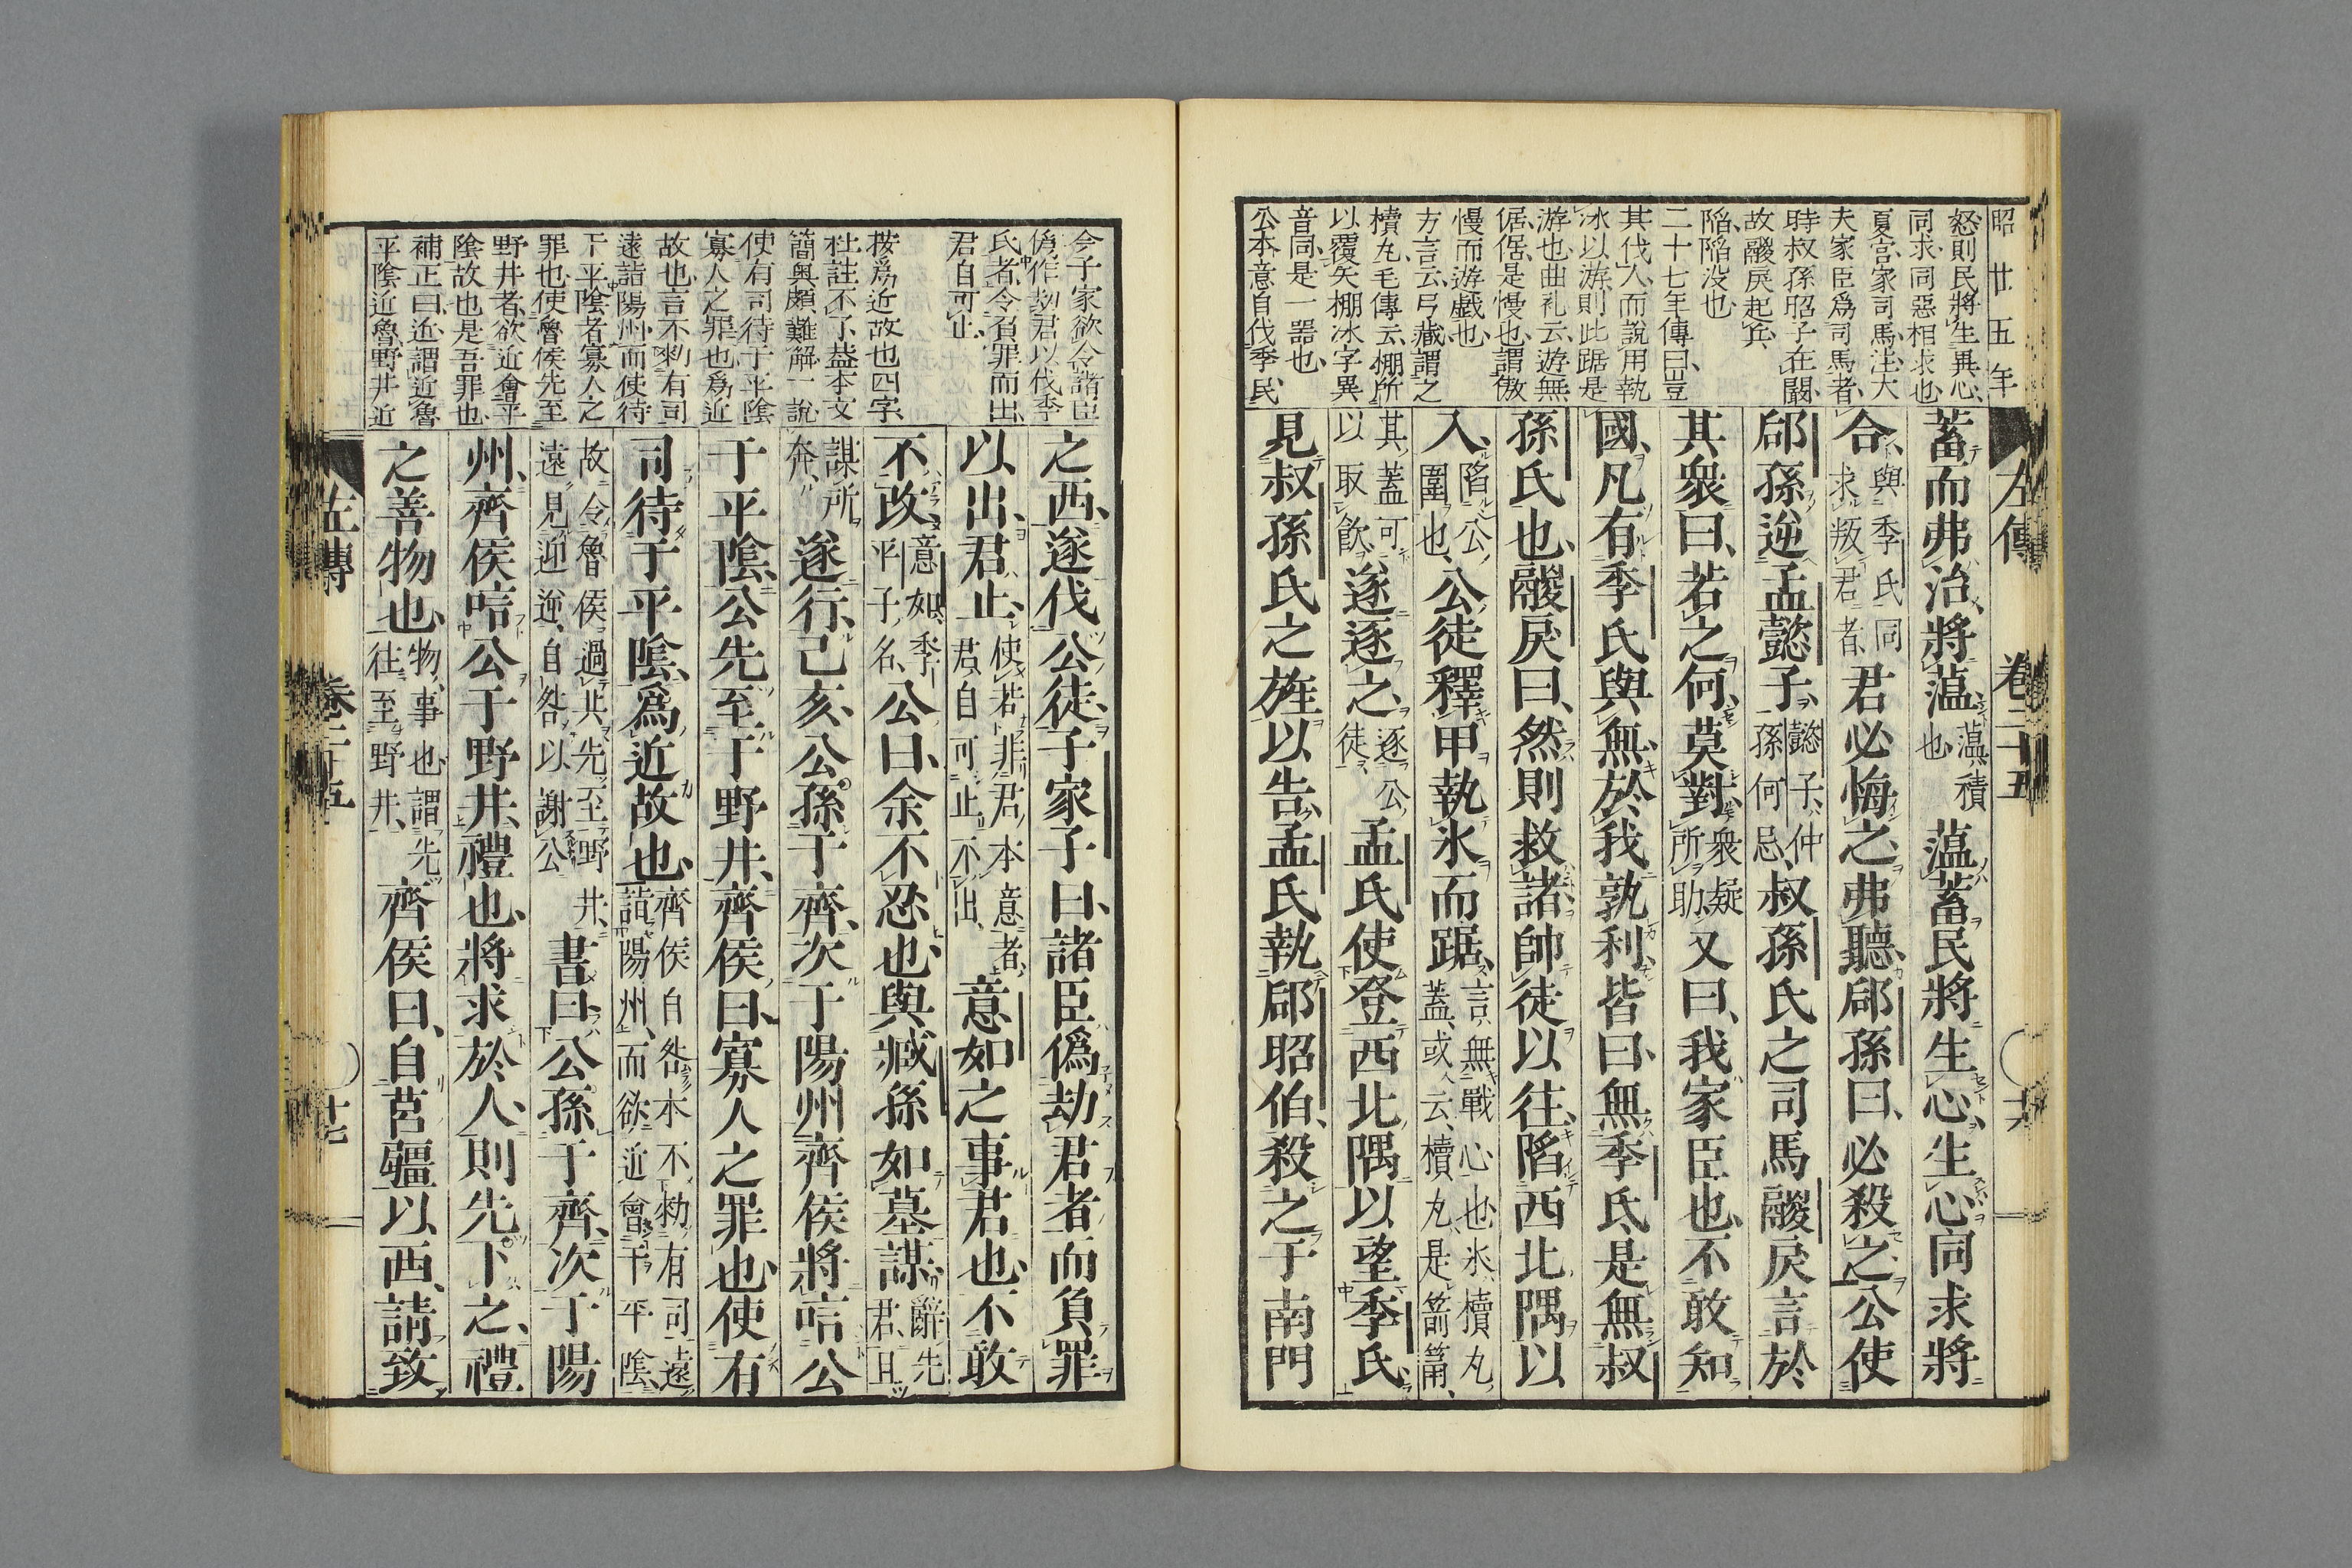 昭廿五年
怒則民將生異心
同求同惡相求也
夏官家司馬注大
夫家臣爲司馬者
時叔孫昭子在闞
故鬷戾起兵
陷陷没也
二十七年傳曰豈
其伐人而說用執
冰以游則此踞是
游也曲礼云遊無
倨倨是慢也謂傲
慢而游戲也
方言云弓藏謂之
櫝丸毛傳云棚所
以覆矢棚冰字異
音同是一器也
公本意自伐季氏
左傳 卷二十五 十六
蓄而弗治將薀薀積也薀蓄民將生心生心同求將
合與季氏同求叛君者君必悔之弗聽郈孫曰必殺之公使
郈孫逆孟懿子懿子仲孫何忌叔孫氏之司馬鬷戾言於
其衆曰若之何莫對衆疑所助又曰我家臣也不敢知
國凡有季氏與無於我孰利皆曰無季氏是無叔
孫氏也鬷戾曰然則救諸帥徒以往陷西北隅以
入陷公圍也公徒釋甲執氷而踞言無戰心也氷櫝丸蓋或云櫝丸是箭筩
其蓋可以取飲遂逐之逐公徒孟氏使登西北隅以望季氏
見叔孫氏之旌以告孟氏執郈昭伯殺之于南門
令子家欲令諸臣
僞作劫君以伐季
氏者令負罪而出
君自可止
按爲近故也四字
杜註不了益本文
簡奧頗難解一說
使有司待于平陰
寡人之罪也爲近
故也言不勑有司
遠詣陽州而使待
于平陰者寡人之
罪也使魯侯先至
野井者欲近會平
陰故也是吾罪也
補正曰近謂近魯
平陰近魯野井近
之西遂伐公徒子家子曰諸臣僞劫君者而負罪
以出君止使若非君本意者君自可止不出意如之事君也不敢
不改意如季平子名公曰余不忍也與臧孫如墓謀辭先君且
謀所奔遂行己亥公孫于齊次于陽州齊侯將唁公
于平陰公先至于野井齊侯曰寡人之罪也使有
司待于平陰爲近故也齊侯自咎本不勑有司遠詣陽州而欲近會于平陰
故令魯侯過共先至野井遠見迎逆自咎以謝公書曰公孫于齊次于陽
州齊侯唁公于野井禮也將求於人則先下之禮
之善物也物事也謂先往至野井齊侯曰自莒疆以西請致
左傳 卷二十五 十七